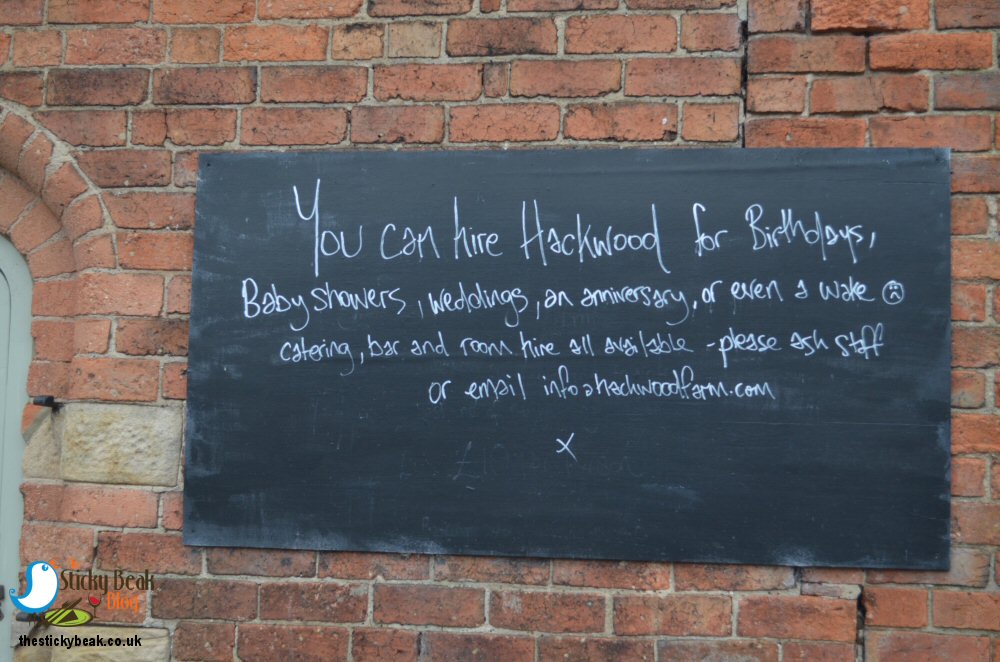 You can hire Hackwood for Birthdays,
Baby showers, weddings, an anniversary, or even a wake ☹
catering, bar and room hire all available - please ask staff
or email info@hackwoodfarm.com
x
The
Sticky Beak
Blog
thestickybeak.co.uk